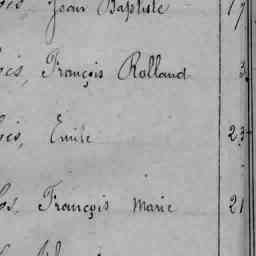 Jean Baptiste 17
François Rolland 3
Emile 23
François Marie 21